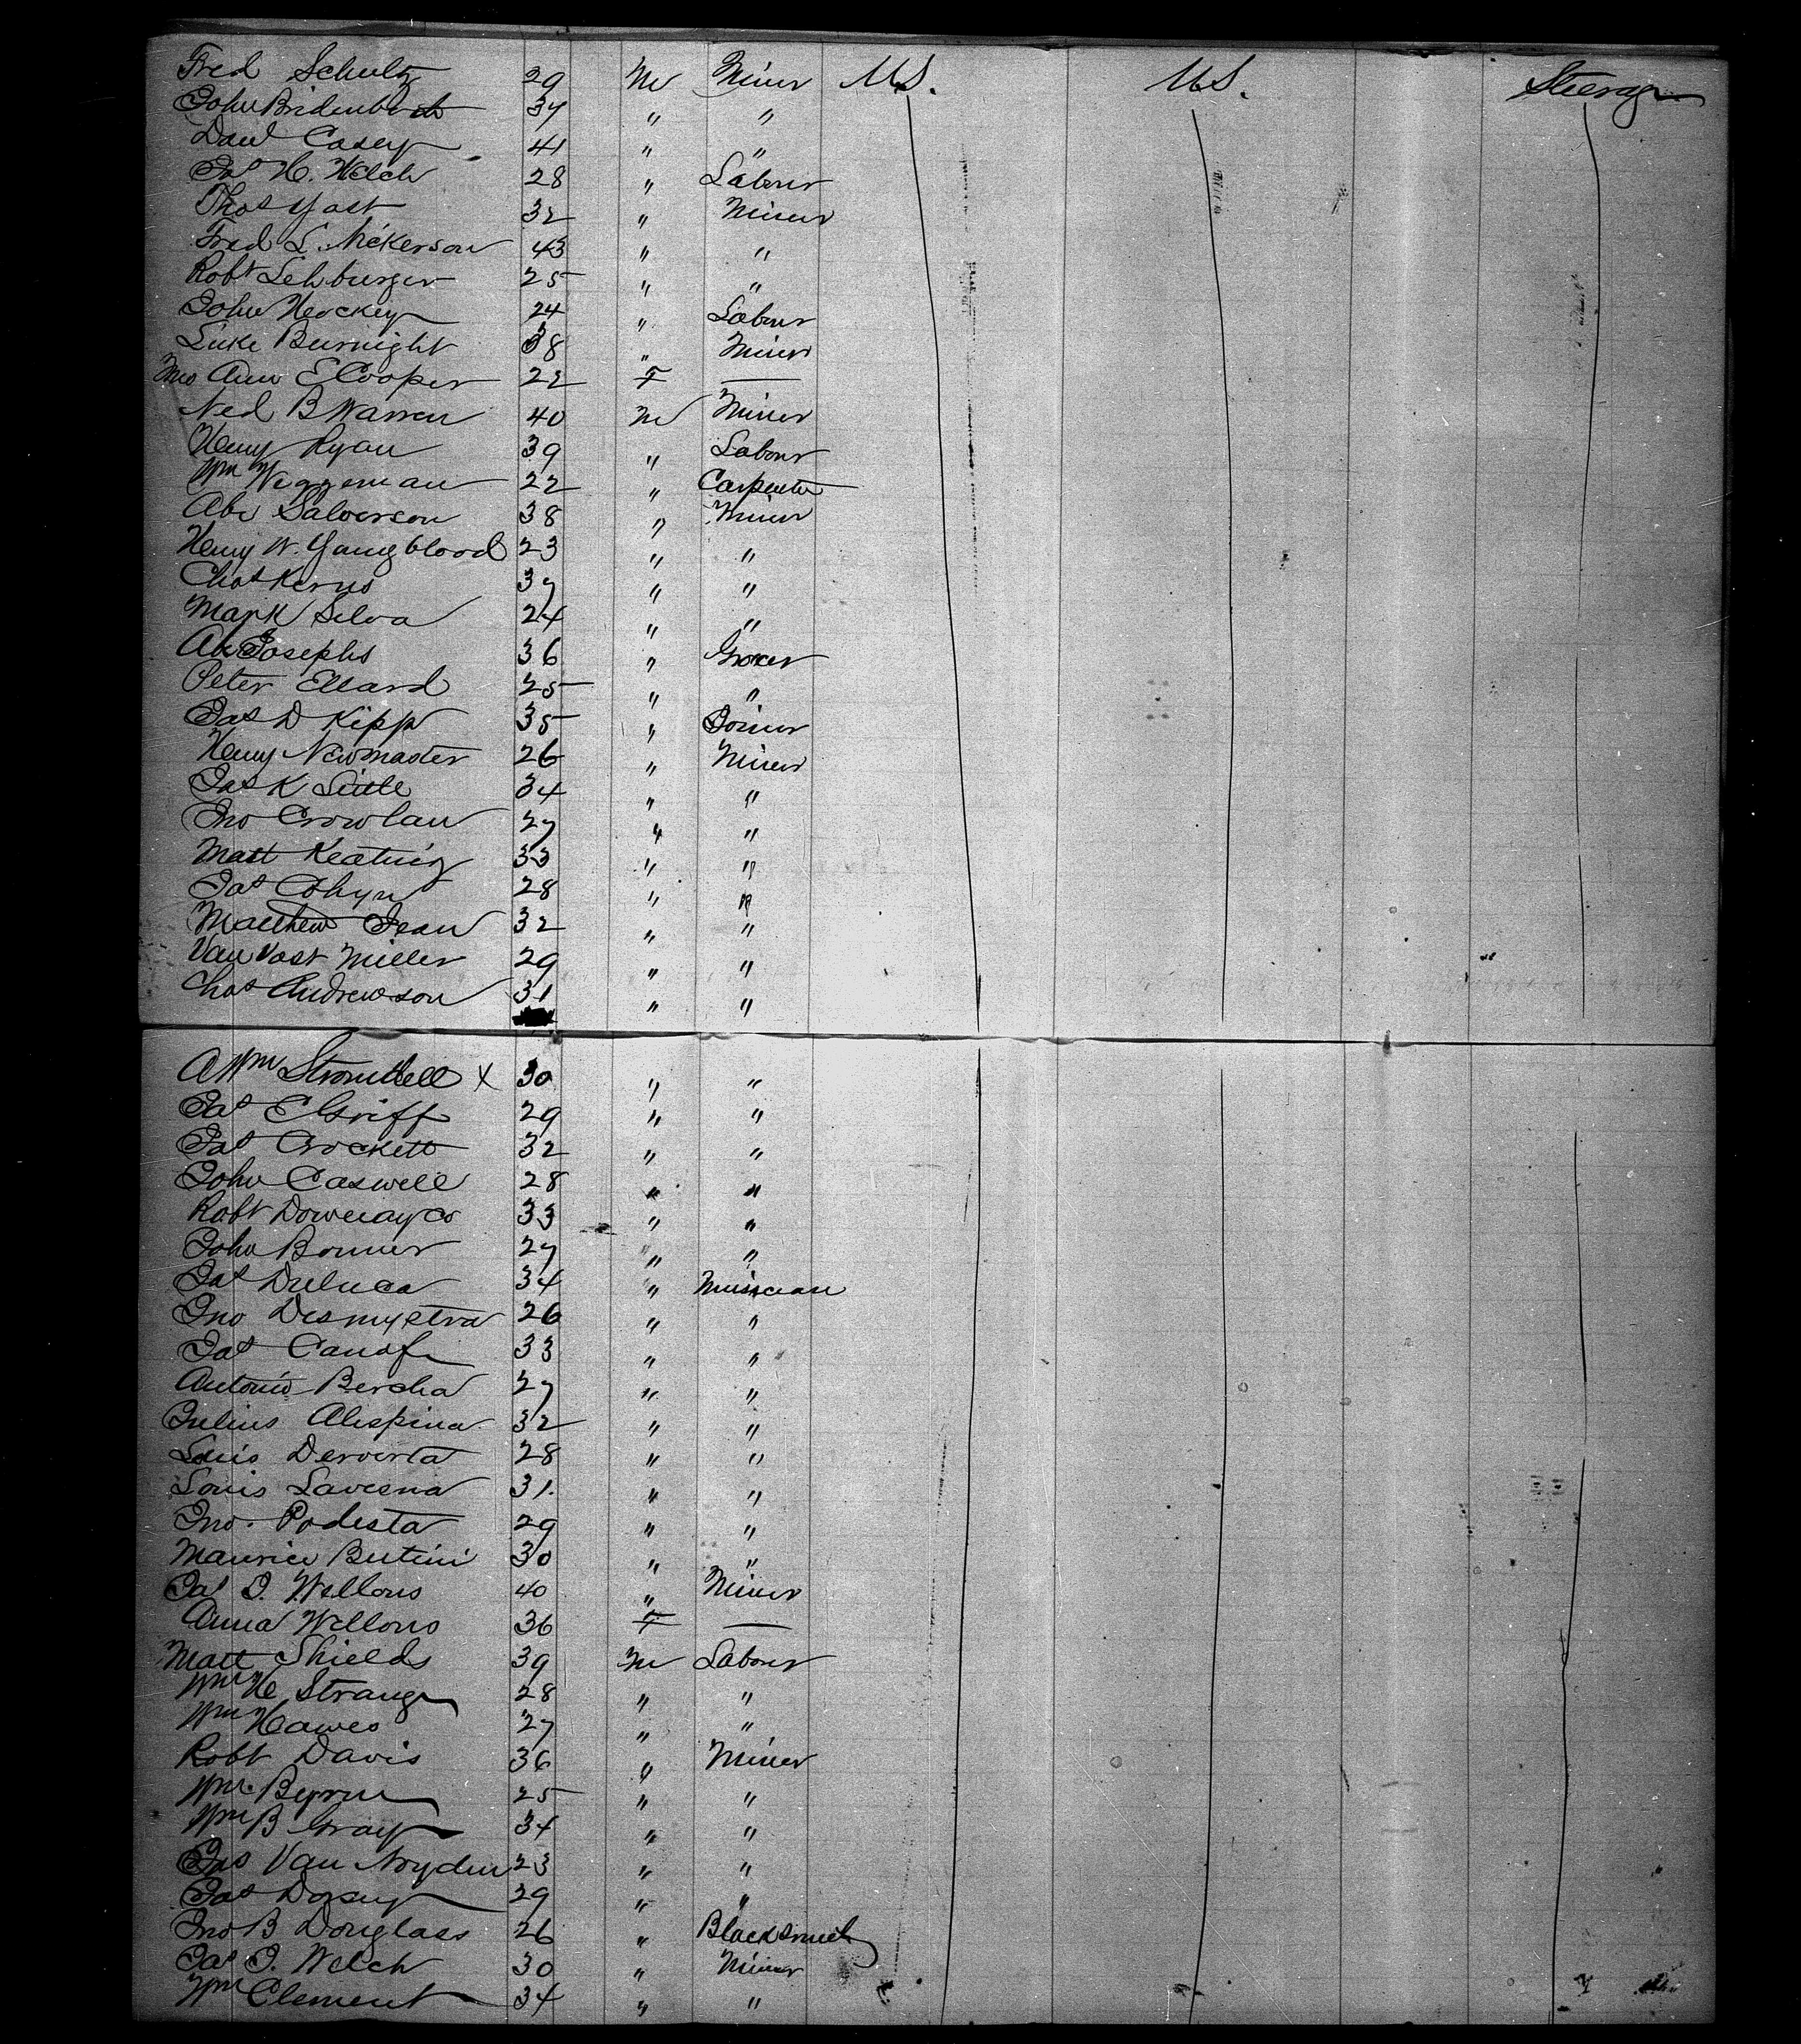 Fred Schultz 29 M Miner U.S. U.S. Steerage
John Bridenbach 37 " "
Danl Casey 41 " "
Jas H. Welch 28 " Laborer
Thos Yost 32 " Miner
Fred L. Nickerson 43 " "
Robt Lehburger 25 " "
John Hockey 24 " Laborer
Luke Burnight 38 " Miner
Mrs Ann E Cooper 22 F —
Ned B Warren 40 M Miner
Henry Ryan 39 " Laborer
Wm Weggeman 22 " Carpenter
Abe Salverson 38 " Miner
Henry W. Youngblood 23 " "
Chas Kerns 37 " "
Mark Silva 24 " "
Abe Josephs 36 " Grocer
Peter Ellard 25 " "
Jas D Kipp 35 " Joiner
Henry Newmaster 26 " Miner
Jas K Little 34 " "
Jno Crowlan 27 " "
Matt Keating 33 " "
Jas Cohyn 28 " "
Matthew Jean 32 " "
Van Vost Miller 29 " "
Chas Andrewson 31 " "
A Wm Strombell x 30 " "
Jas E Griff 29 " "
Jas Crockett 32 " "
John Caswell 28 " "
Robt 33 " "
John Bonner 27 " "
Jas Deluca 34 " Musician
Jno Desmyetra 26 " "
Jas Canofe 33 " "
Antonio Bercha 27 " "
Julius Alespina 32 " "
Louis Deroerta 28 " "
Louis Lavesna 31. " "
Jno. Podesta 29 " "
Maurice Butini 30 " "
Jas D. Wellons 40 " Miner
Anna Wellons 36 F —
Matt Shields 39 M Laborer
Wm H Strange 28 " "
Wm Hawes 27 " "
Robt Davis 36 " Miner
Wm. Byrne 25 " "
Wm B Gray 34 " "
Jas Van Nryden 23 " "
Jas Dorsey 29 " "
Jno B Douglass 26 " Blacksmith
Jas J. Welch 30 " Miner
Wm Clement 34 " "